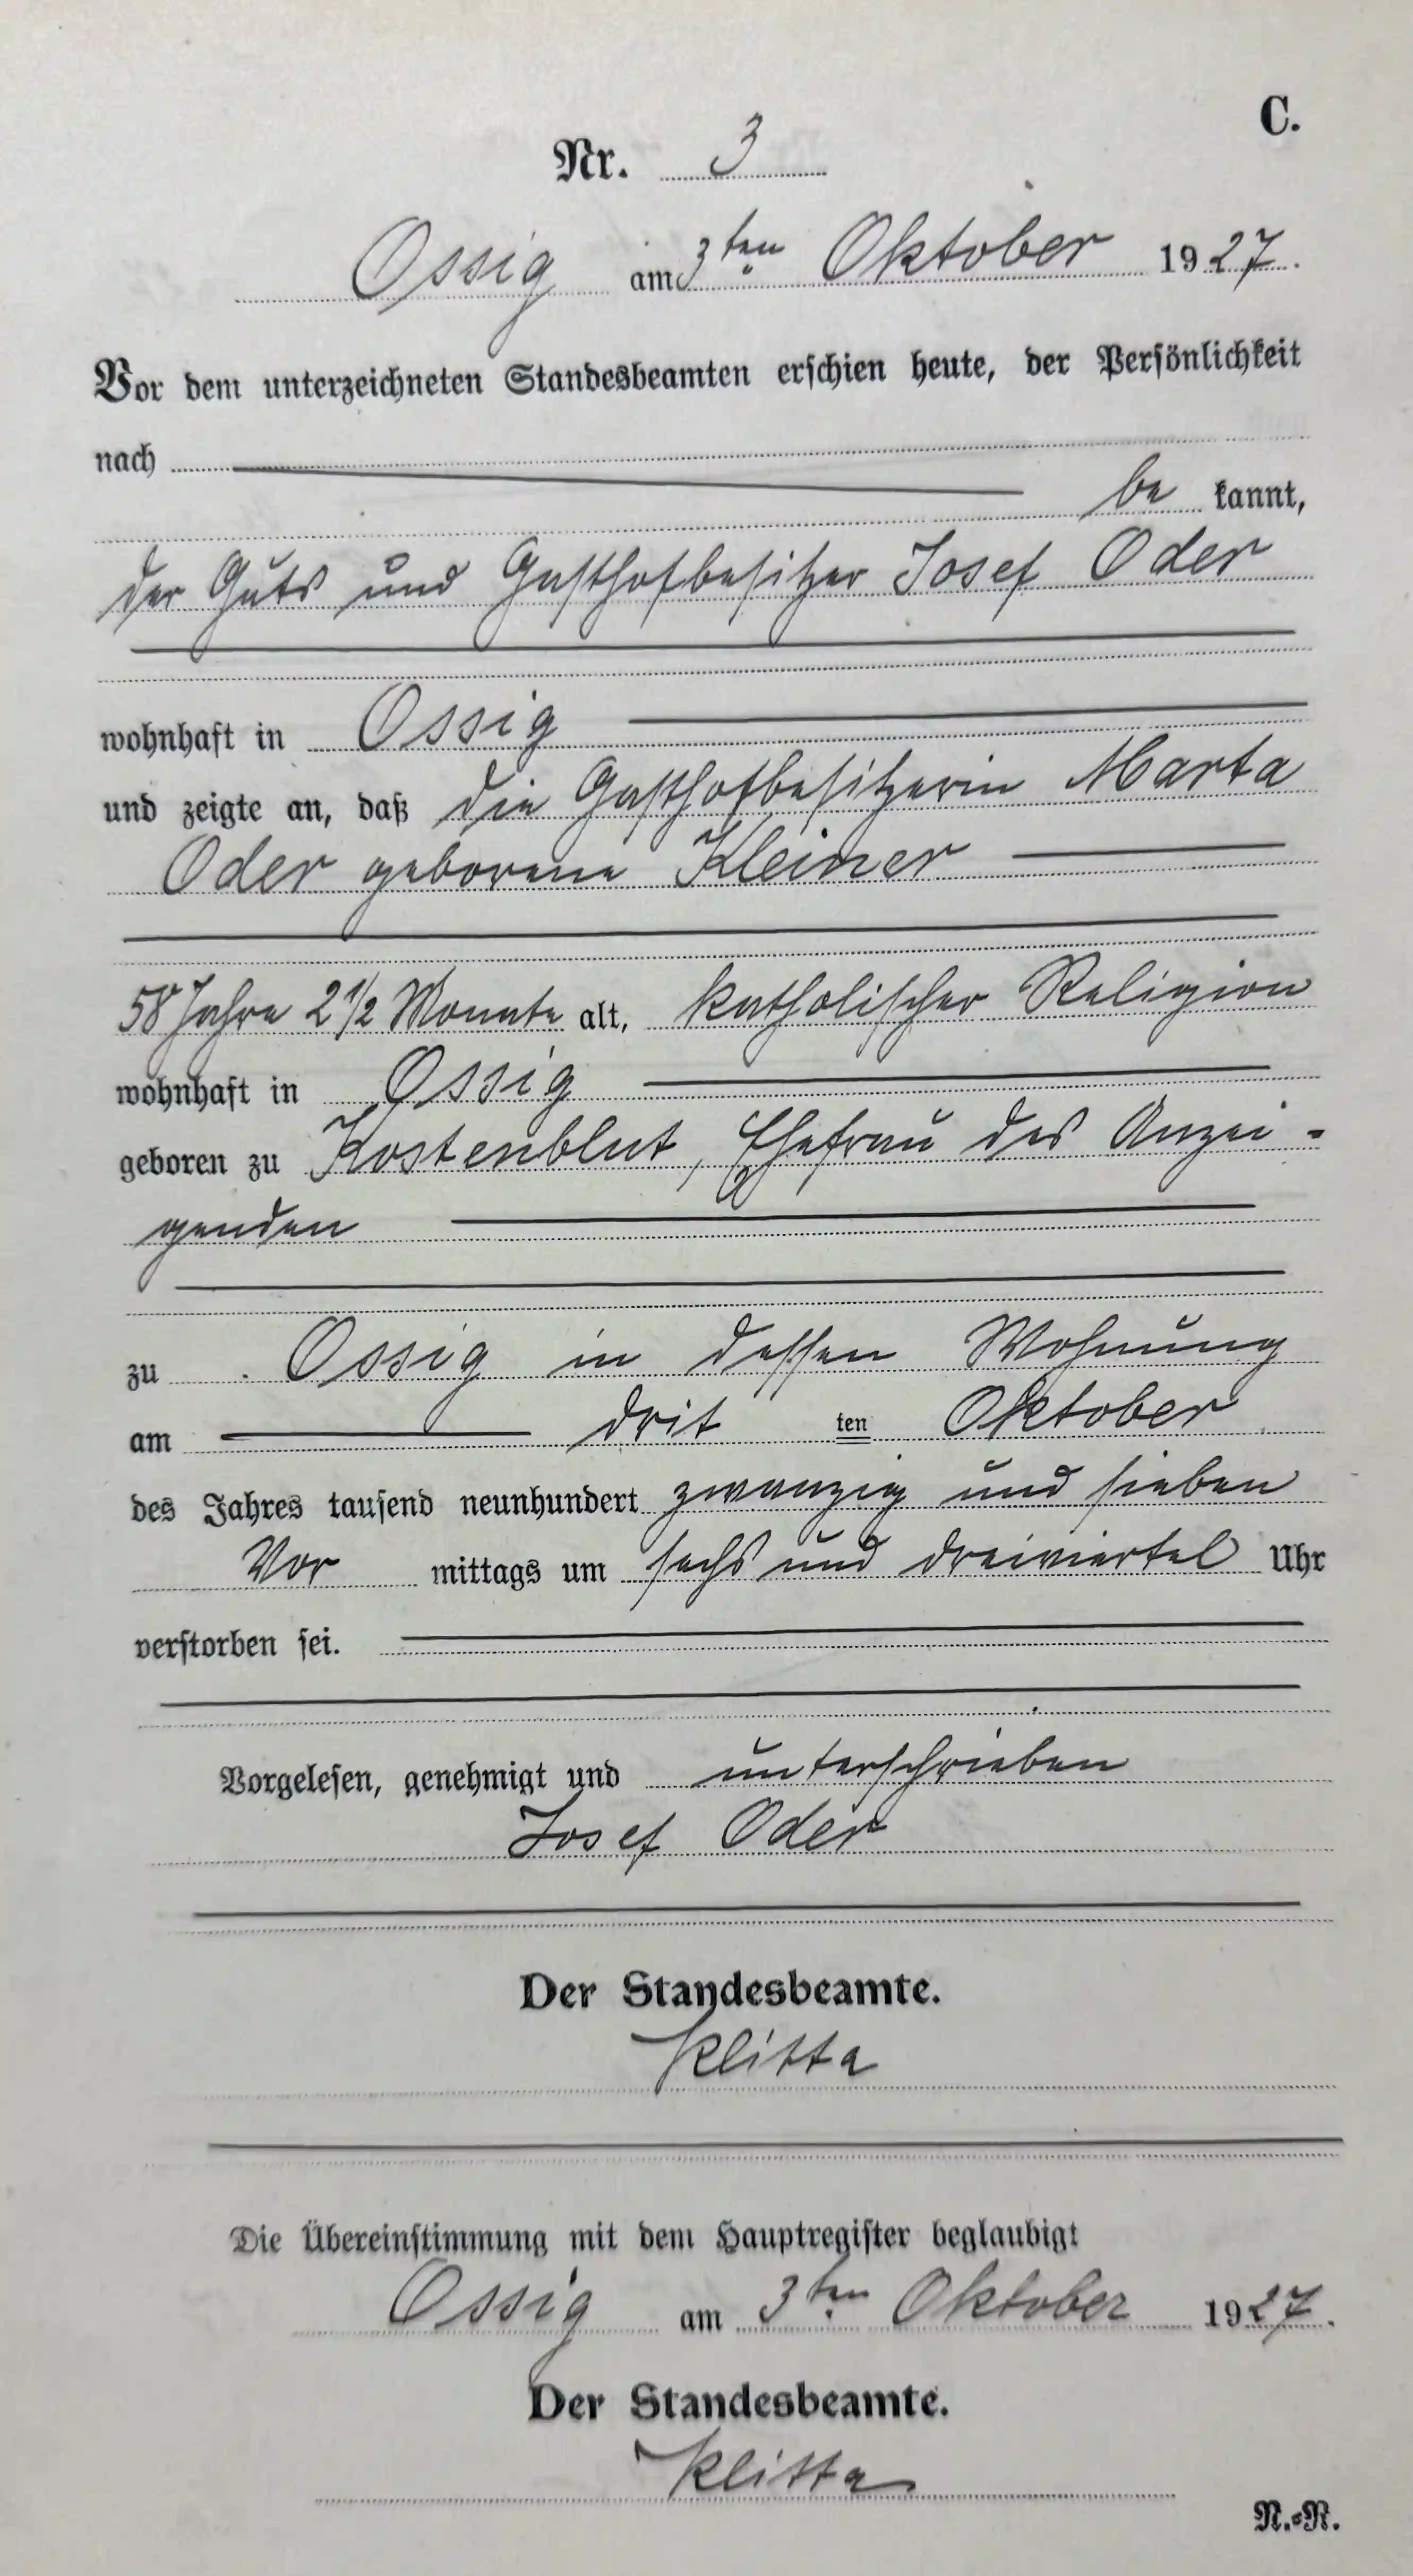 C.
Nr. 3
Ossig am 3ten Oktober 1927.
Vor dem unterzeichneten Standesbeamten erschien heute, der Persönlichkeit
nach
be kannt,
der Guts und Gasthofbesitzer Josef Oder
wohnhaft in Ossig
und zeigte an, daß die Gasthofbesitzerin Marta
Oder geborene Kleiner
58 Jahre 2 1/2 Monate alt, katholischer Religion
wohnhaft in Ossig
geboren zu Kostenblut, Ehefrau des Anzei-
genden
zu Ossig in dessen Wohnung
am drit ten Oktober
des Jahres tausend neunhundert zwanzig und sieben
Vor mittags um sechs und dreiviertel Uhr
verstorben sei.
Vorgelesen, genehmigt und unterschrieben
Josef Oder
Der Standesbeamte.
Klitta
Die Übereinstimmung mit dem Hauptregister beglaubigt
Ossig am 3ten Oktober 1927.
Der Standesbeamte.
Klitta
N.-R.